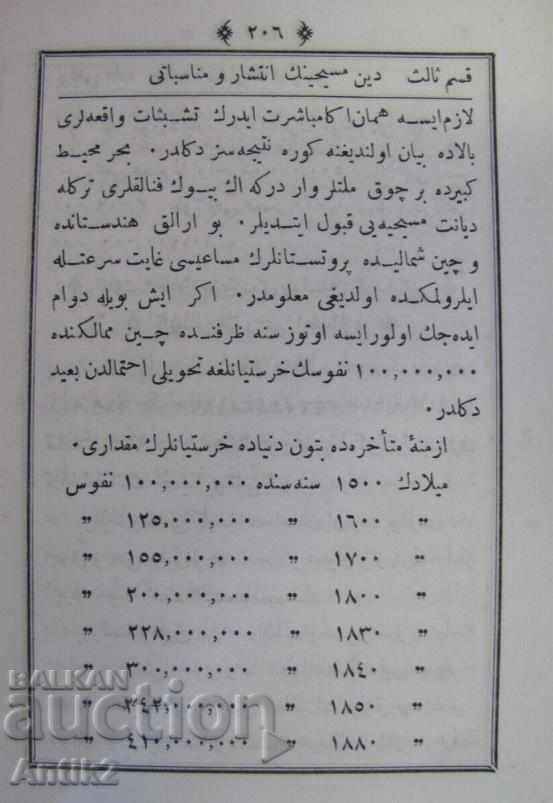 ٢٠٦
قسم ثالث دين مسيحينك انتشار و مناسباتى
لازم ايسه همان اكا مباشرت ايدرك تشبثات واقعه‌لرى
بالاده بيان اولنديغنه كوره نتيجه‌سز دكلدر٠ بحر محيط
كبيرده بر چوق ملتلر وار دركه اك بيوك فنالقلرى تركله
ديانت مسيحيه‌يى قبول ايتديلر٠ بو ارالق هندستانده
و چين شماليده پروتستانلرك مساعيسى غايت سرعتله
ايلرولمكده اولديغى معلومدر٠ اكر ايش بويله دوام
ايده‌جك اولورايسه اوتوز سنه ظرفنده چين ممالكنده
١٠٠,٠٠٠,٠٠٠ نفوسك خرستيانلغه تحويلى احتمالدن بعيد
دكلدر٠
ازمنهٔ متأخره‌ده بتون دنياده خرستيانلرك مقدارى٠
ميلادك ١٥٠٠ سنه‌سنده ١٠٠,٠٠٠,٠٠٠ نفوس
” ١٦٠٠ ” ١٢٥,٠٠٠,٠٠٠ ”
” ١٧٠٠ ” ١٥٥,٠٠٠,٠٠٠ ”
” ١٨٠٠ ” ٢٠٠,٠٠٠,٠٠٠ ”
” ١٨٣٠ ” ٢٢٨,٠٠٠,٠٠٠ ”
” ١٨٤٠ ” ٣٠٠,٠٠٠,٠٠٠ ”
” ١٨٥٠ ” ٣٤٢,٠٠٠,٠٠٠ ”
” ١٨٨٠ ” ٤١٠,٠٠٠,٠٠٠ ”
BALKAN
auction
Antik2